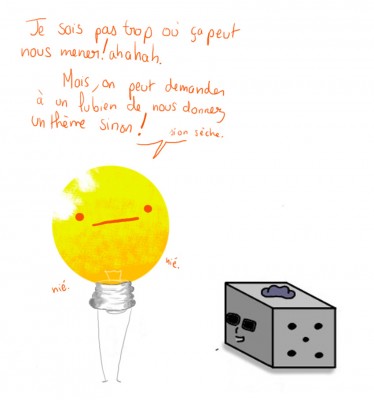 Je sais pas trop où ça peut
nous mener! ahahah.
Mais, on peut demander
à un lubien de nous donner
un thème sinon!
si on sèche.
nié.
nié.